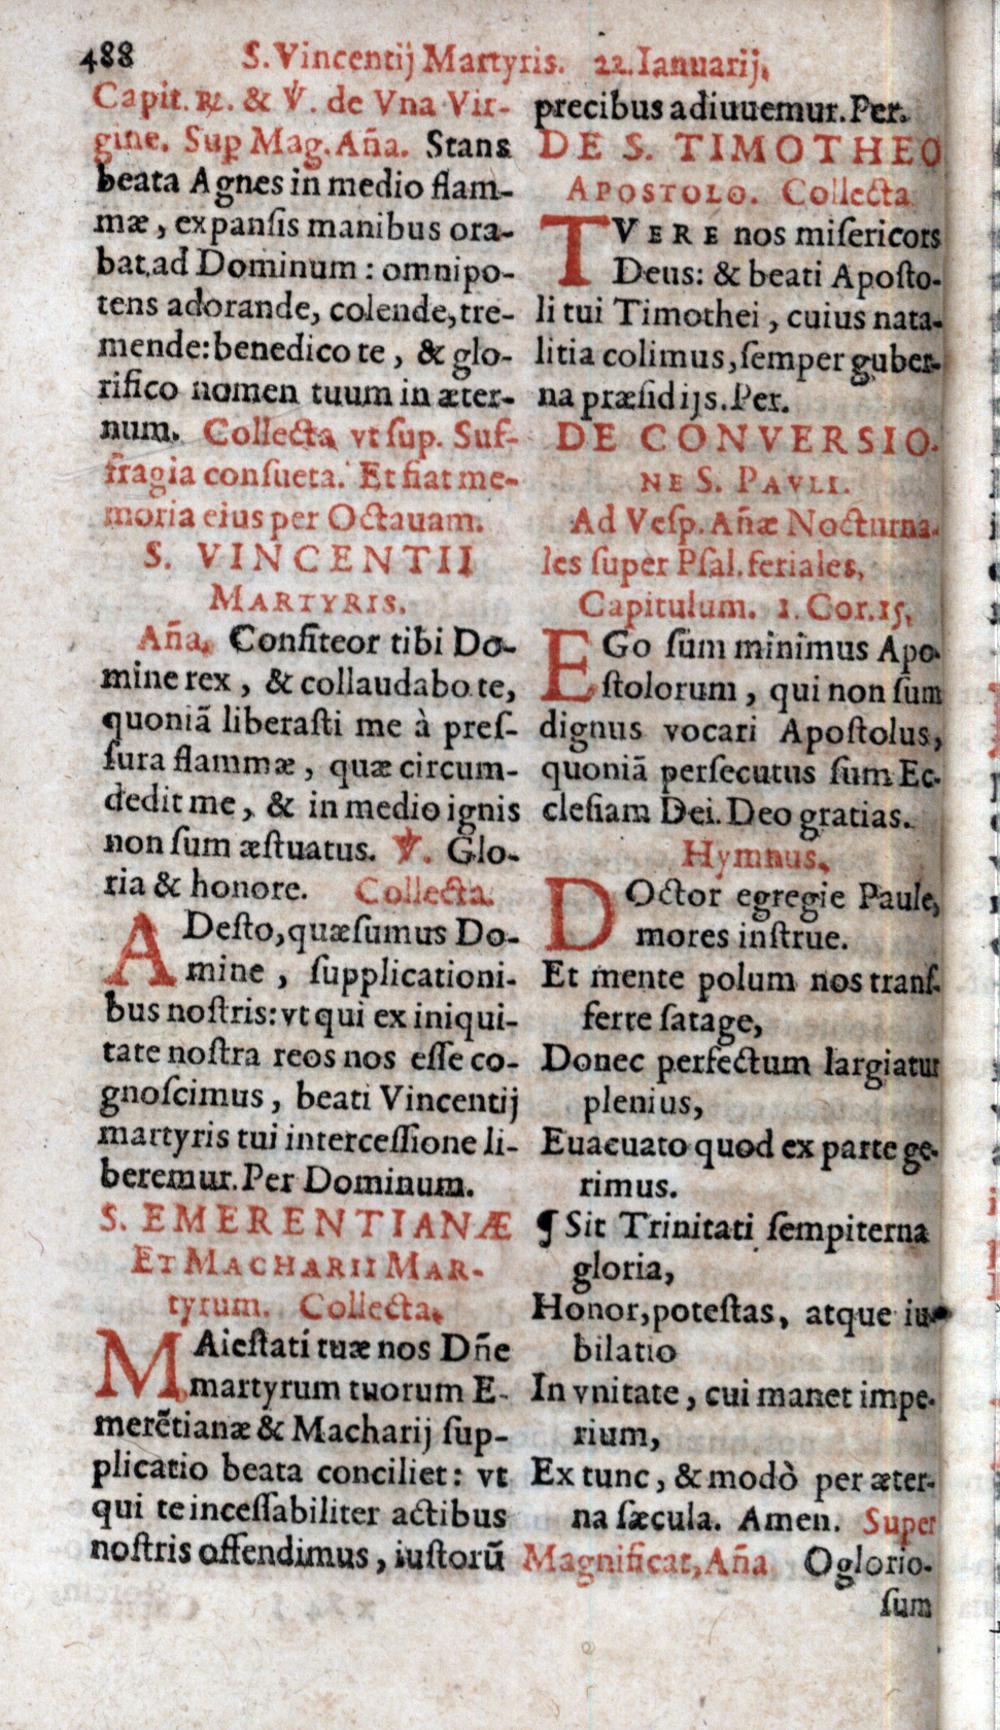 488 S. Vincentij Martyris. 22. Ianuarij.
Capit. ℟. & ℣. de Vna Vir-
gine. Sup Mag. Aña. Stans
beata Agnes in medio flam-
mæ, expanſis manibus ora-
bat ad Dominum : omnipo-
tens adorande, colende, tre-
mende: benedico te, & glo-
rifico nomen tuum in æter-
num. Collecta vt ſup. Suf-
fragia conſueta. Et fiat me-
moria eius per Octauam.
S. VINCENTII
MARTYRIS.
Aña. Confiteor tibi Do-
mine rex, & collaudabo te,
quoniã liberaſti me à preſ-
ſura flammæ, quæ circum-
dedit me, & in medio ignis
non ſum æſtuatus. ℣. Glo-
ria & honore. Collecta.
ADeſto, quæſumus Do-
mine, ſupplicationi-
bus noſtris: vt qui ex iniqui-
tate noſtra reos nos eſſe co-
gnoſcimus, beati Vincentij
martyris tui interceſſione li-
beremur. Per Dominum.
S. EMERENTIANÆ
ET MACHARII MAR-
tyrum. Collecta.
MAieſtati tuæ nos Dñe
martyrum tuorum E-
merẽtianæ & Macharij ſup-
plicatio beata conciliet: vt
qui te inceſſabiliter actibus
noſtris offendimus, iuſtorũ
precibus adiuuemur. Per.
DE S. TIMOTHEO
APOSTOLO. Collecta
TVERE nos miſericors
Deus: & beati Apoſto-
li tui Timothei, cuius nata-
litia colimus, ſemper guber-
na præſidijs. Per.
DE CONVERSIO-
NE S. PAVLI.
Ad Veſp. Añæ Nocturna-
les ſuper Pſal. feriales.
Capitulum. 1. Cor. 15.
EGo ſum minimus Apo-
ſtolorum, qui non ſum
dignus vocari Apoſtolus,
quoniã perſecutus ſum Ec-
cleſiam Dei. Deo gratias.
Hymnus.
DOctor egregie Paule,
mores inſtrue.
Et mente polum nos tranſ-
ferre ſatage,
Donec perfectum largiatur
plenius,
Euacuato quod ex parte ge-
rimus.
¶ Sit Trinitati ſempiterna
gloria,
Honor, poteſtas, atque iu-
bilatio
In vnitate, cui manet impe-
rium,
Ex tunc, & modò per æter-
na ſæcula. Amen. Super
Magnificat, Aña O glorio-
ſum